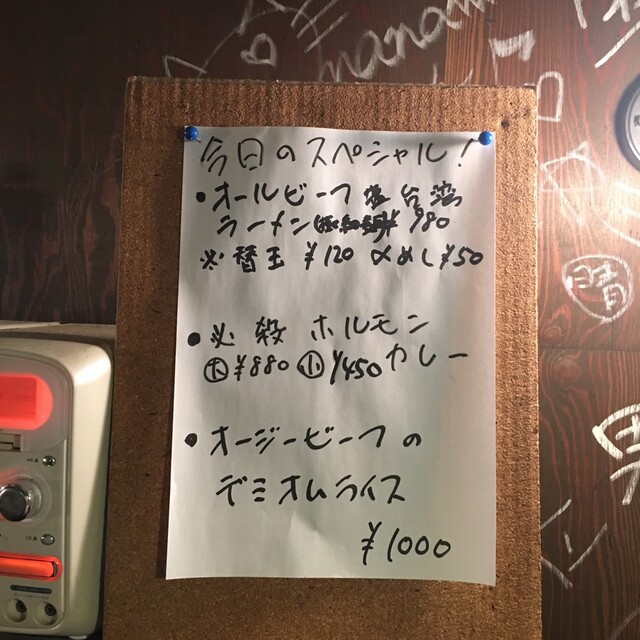 今日のスペシャル!
・オールビーフ 台湾
ラーメン 980
※替玉 ¥120 〆めし¥50
・必殺 ホルモン
大¥880 小¥450 カレー
・オージービーフの
デミオムライス
¥1000